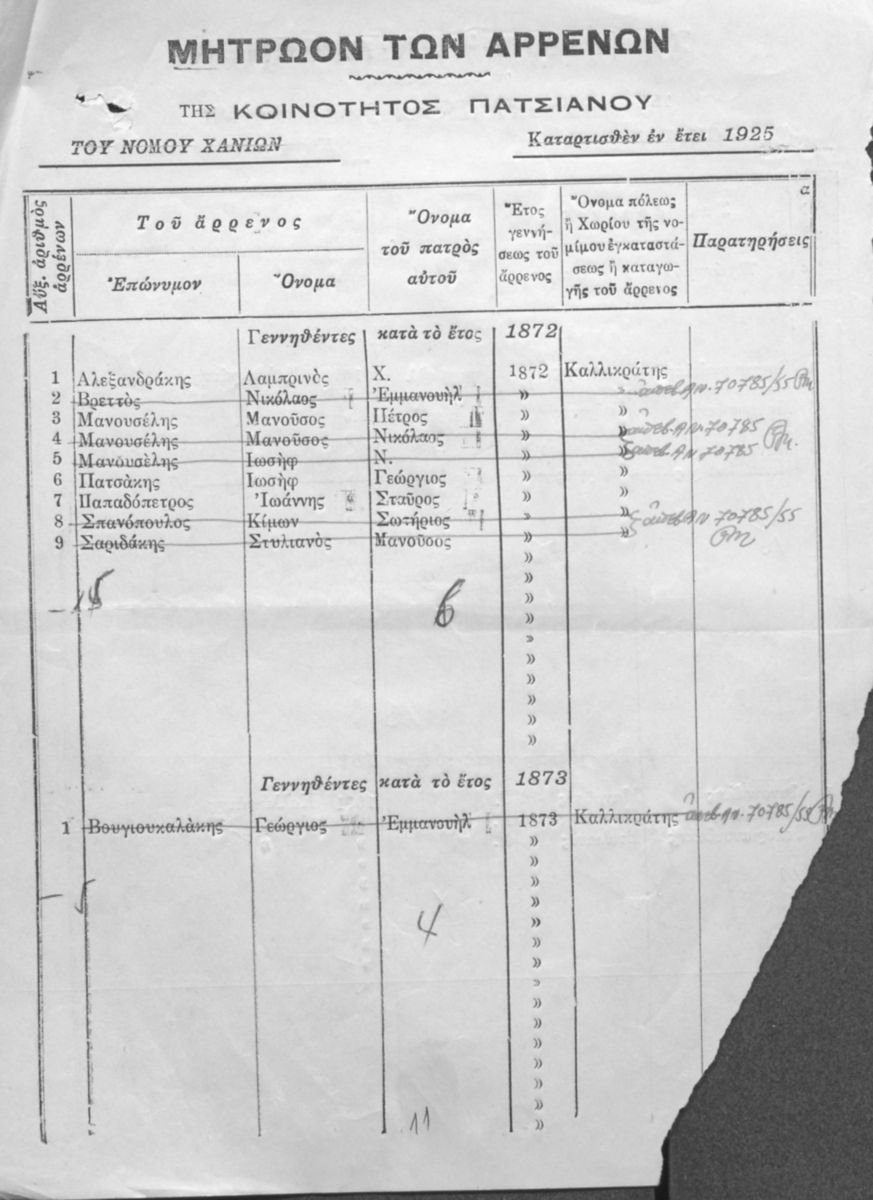 ΜΗΤΡΩΟΝ ΤΩΝ ΑΡΡΕΝΩΝ
ΤΗΣ ΚΟΙΝΟΤΗΤΟΣ ΠΑΤΣΙΑΝΟΥ
ΤΟΥ ΝΟΜΟΥ ΧΑΝΙΩΝ Καταρτισθὲν ἐν ἔτει 1925
α
Αὔξ. ἀριθμὸς ἀρρένων
Τοῦ ἄρρενος
Ἐπώνυμον Ὄνομα
Ὄνομα
τοῦ πατρὸς
αὐτοῦ
Ἔτος
γεννή-
σεως τοῦ
ἄρρενος
Ὄνομα πόλεως
ἢ Χωρίου τῆς νο-
μίμου ἐγκαταστά-
σεως ἢ καταγω-
γῆς τοῦ ἄρρενος
Παρατηρήσεις
Γεννηθέντες κατὰ τὸ ἔτος 1872
1 Ἀλεξανδράκης Λαμπρινὸς Χ. 1872 Καλλικράτης
2 Βρεττὸς Νικόλαος Ἐμμανουὴλ » » 70785/55
3 Μανουσέλης Μανοῦσος Πέτρος » »
4 Μανουσέλης Μανοῦσος Νικόλαος » » 70785
5 Μανουσὲλης Ιωσὴφ Ν. » » 70785
6 Πατσάκης Ιωσὴφ Γεώργιος » »
7 Παπαδόπετρος Ἰωάννης Σταῦρος » »
8 Σπανόπουλος Κίμων Σωτήριος » » 70785/55
9 Σαριδάκης Στυλιανὸς Μανοῦσος » »
»
»
»
6
»
»
»
»
»
»
»
Γεννηθέντες κατὰ τὸ ἔτος 1873
1 Βουγιουκαλάκης Γεώργιος Ἐμμανουὴλ 1873 Καλλικράτης 70785/55
»
»
»
— 5
»
4 »
»
»
»
»
»
»
»
»
»
11 »